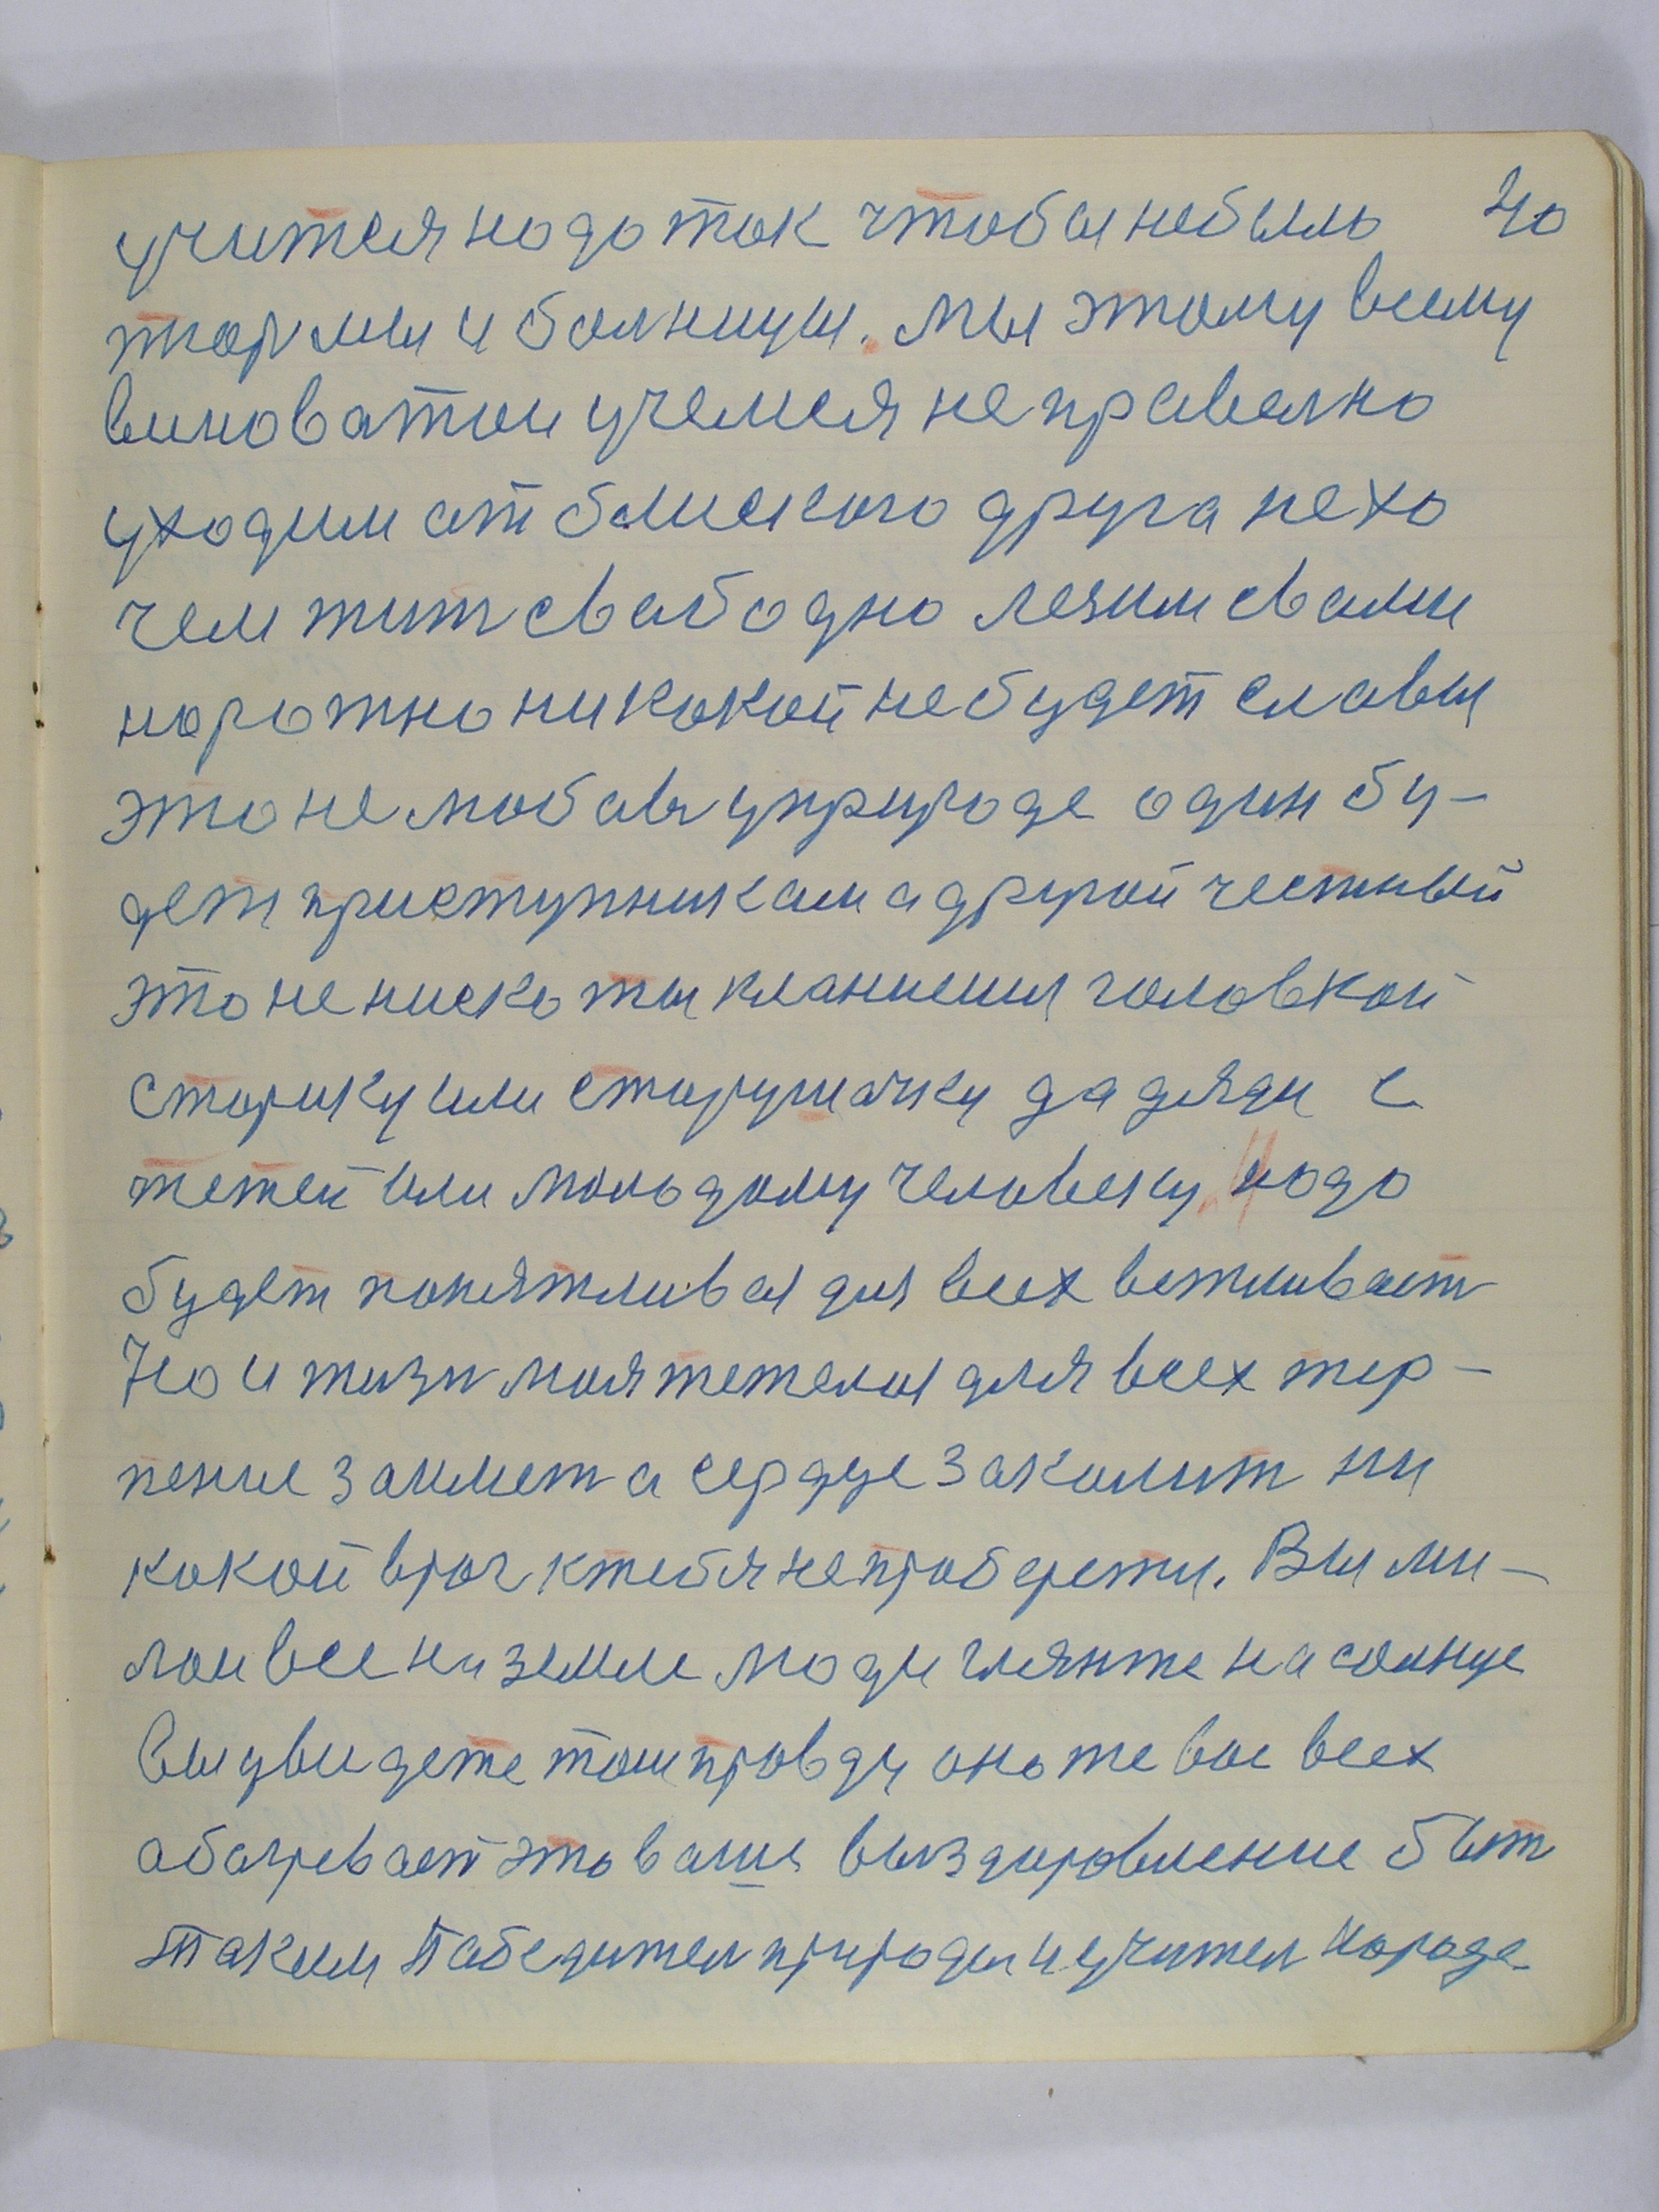 учится надо так чтобы небыло 40
тюрмы и болницы. Мы этому всему
виноватои учемся не правелно
уходим от блиского друга не хо
чем жит свабодно лезим свами
нарожно никокой не будет славы
это не любов у природе один бу-
дет приступником а другой честный
это не ниско ты кланиешя головкой
старику или старушачку дадяди с
тетей или молодому человеку, надо
будет понятливоя для всех вежливаст
Но и жизн моя тежелоя для всех тер-
пение займет а сердце заколит ни
какой врач к тебя не проберети. Вы ми-
лои все на земле люди гляньте на солнце
вы увидете тои правду оно же вас всех
абагревает это ваше выздоровление быт
таким Пабедител природы и учител народа